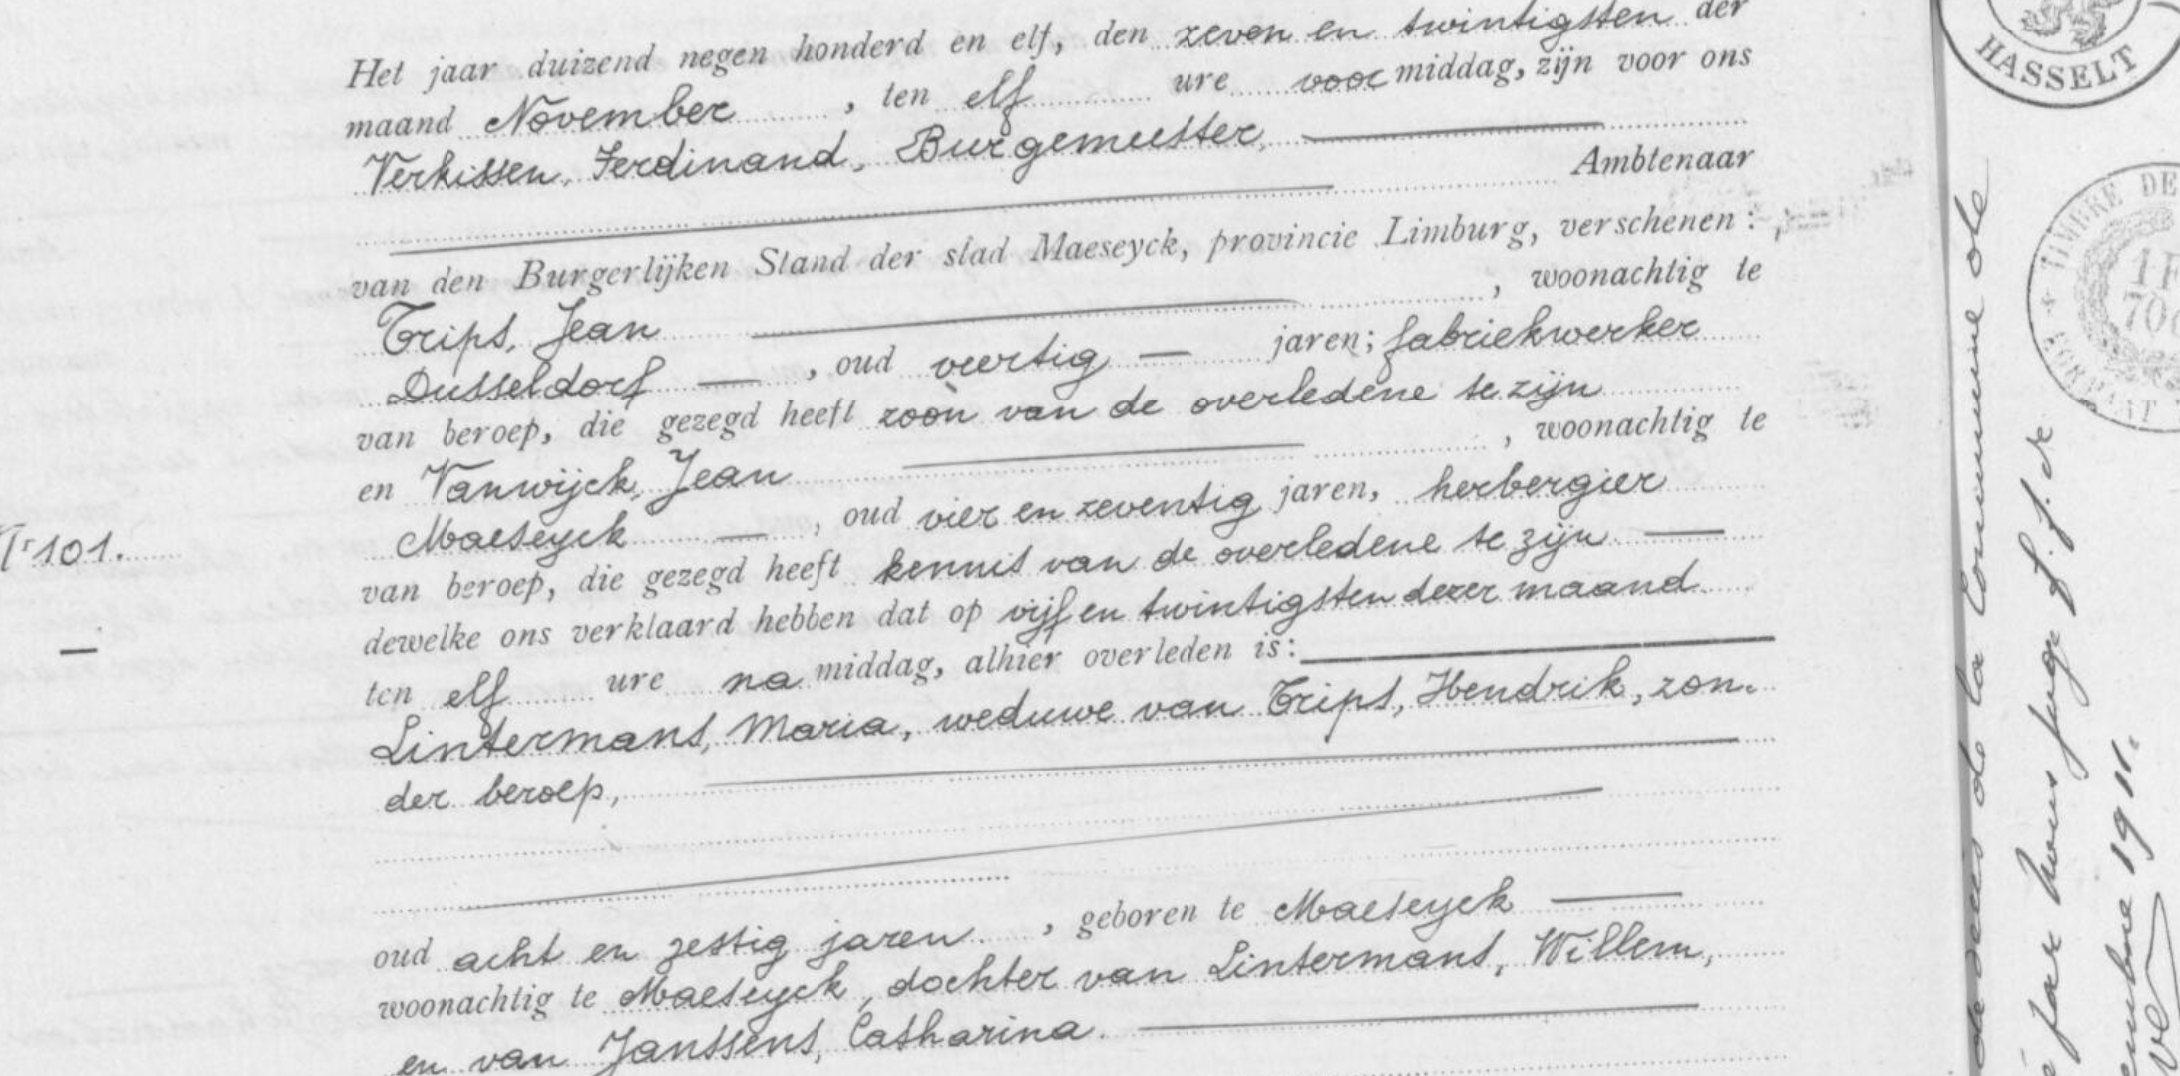 Het jaar duizend negen honderd en elf, den zeven en twintigsten der
maand November, ten elf ure voor middag, zijn voor ons
Verkissen, Ferdinand, Burgemeester,
Ambtenaar
van den Burgerlijken Stand der stad Maeseyck, provincie Limburg, verschenen:
Trips, Jean, woonachtig te
Dusseldorf, oud veertig jaren; fabriekwerker
van beroep, die gezegd heeft zoon van de overledene te zijn
en Vanwijck, Jean, woonachtig te
Maeseyck, oud vier en zeventig jaren, herbergier
van beroep, die gezegd heeft kennis van de overledene te zijn
dewelke ons verklaard hebben dat op vijf en twintigsten dezer maand
ten elf ure na middag, alhier overleden is:
Lintermans, Maria, weduwe van Trips, Hendrik, zon-
der beroep,
oud acht en zestig jaren, geboren te Maeseyck
woonachtig te Maeseyck, dochter van Lintermans, Willem,
en van Janssens, Catharina.
101.
HASSELT
TIMBRE DE
de la Commune de
par nous juge f. f. de
1911.